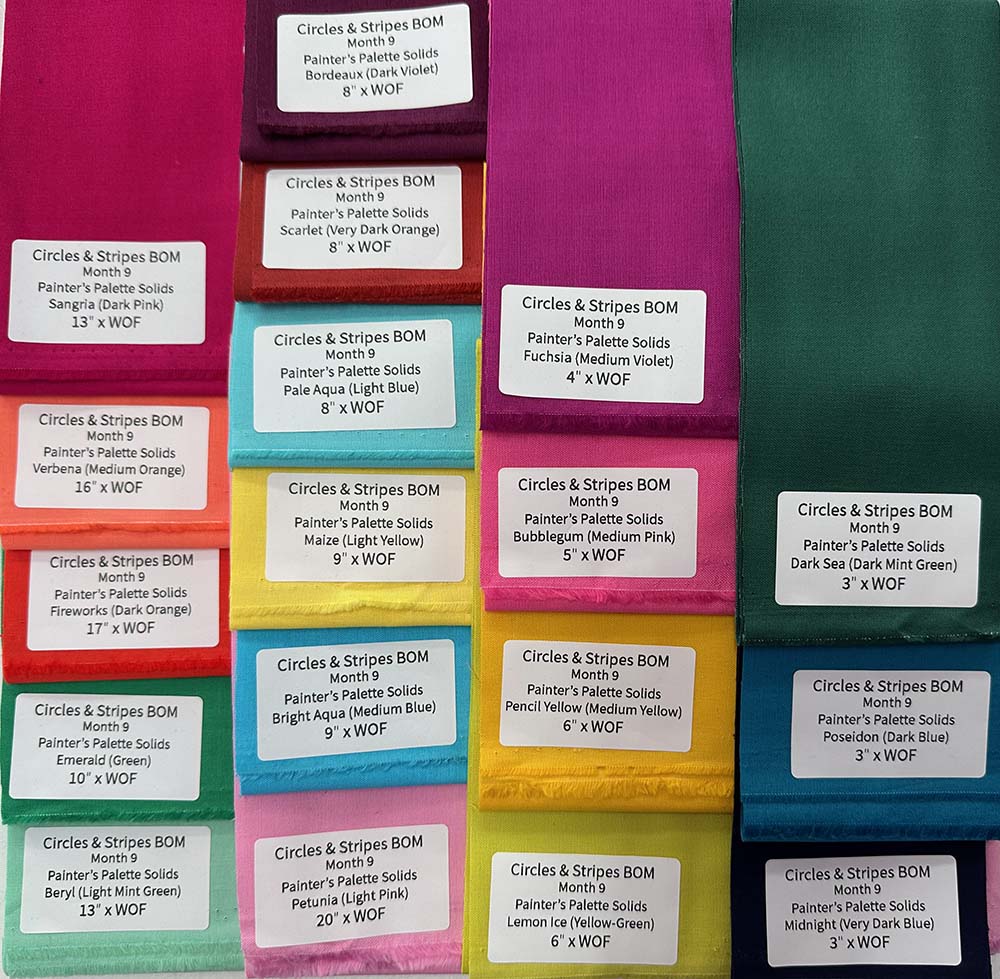 Circles & Stripes BOM
Month 9
Painter's Palette Solids
Sangria (Dark Pink)
13" x WOF
Circles & Stripes BOM
Month 9
Painter's Palette Solids
Verbena (Medium Orange)
16" x WOF
Circles & Stripes BOM
Month 9
Painter's Palette Solids
Fireworks (Dark Orange)
17" x WOF
Circles & Stripes BOM
Month 9
Painter's Palette Solids
Emerald (Green)
10" x WOF
Circles & Stripes BOM
Month 9
Painter's Palette Solids
Beryl (Light Mint Green)
13" x WOF
Circles & Stripes BOM
Month 9
Painter's Palette Solids
Bordeaux (Dark Violet)
8" x WOF
Circles & Stripes BOM
Month 9
Painter's Palette Solids
Scarlet (Very Dark Orange)
8" x WOF
Circles & Stripes BOM
Month 9
Painter's Palette Solids
Pale Aqua (Light Blue)
8" x WOF
Circles & Stripes BOM
Month 9
Painter's Palette Solids
Maize (Light Yellow)
9" x WOF
Circles & Stripes BOM
Month 9
Painter's Palette Solids
Bright Aqua (Medium Blue)
9" x WOF
Circles & Stripes BOM
Month 9
Painter's Palette Solids
Petunia (Light Pink)
20" x WOF
Circles & Stripes BOM
Month 9
Painter's Palette Solids
Fuchsia (Medium Violet)
4" x WOF
Circles & Stripes BOM
Month 9
Painter's Palette Solids
Bubblegum (Medium Pink)
5" x WOF
Circles & Stripes BOM
Month 9
Painter's Palette Solids
Pencil Yellow (Medium Yellow)
6" x WOF
Circles & Stripes BOM
Month 9
Painter's Palette Solids
Lemon Ice (Yellow-Green)
6" x WOF
Circles & Stripes BOM
Month 9
Painter's Palette Solids
Dark Sea (Dark Mint Green)
3" x WOF
Circles & Stripes BOM
Month 9
Painter's Palette Solids
Poseidon (Dark Blue)
3" x WOF
Circles & Stripes BOM
Month 9
Painter's Palette Solids
Midnight (Very Dark Blue)
3" x WOF